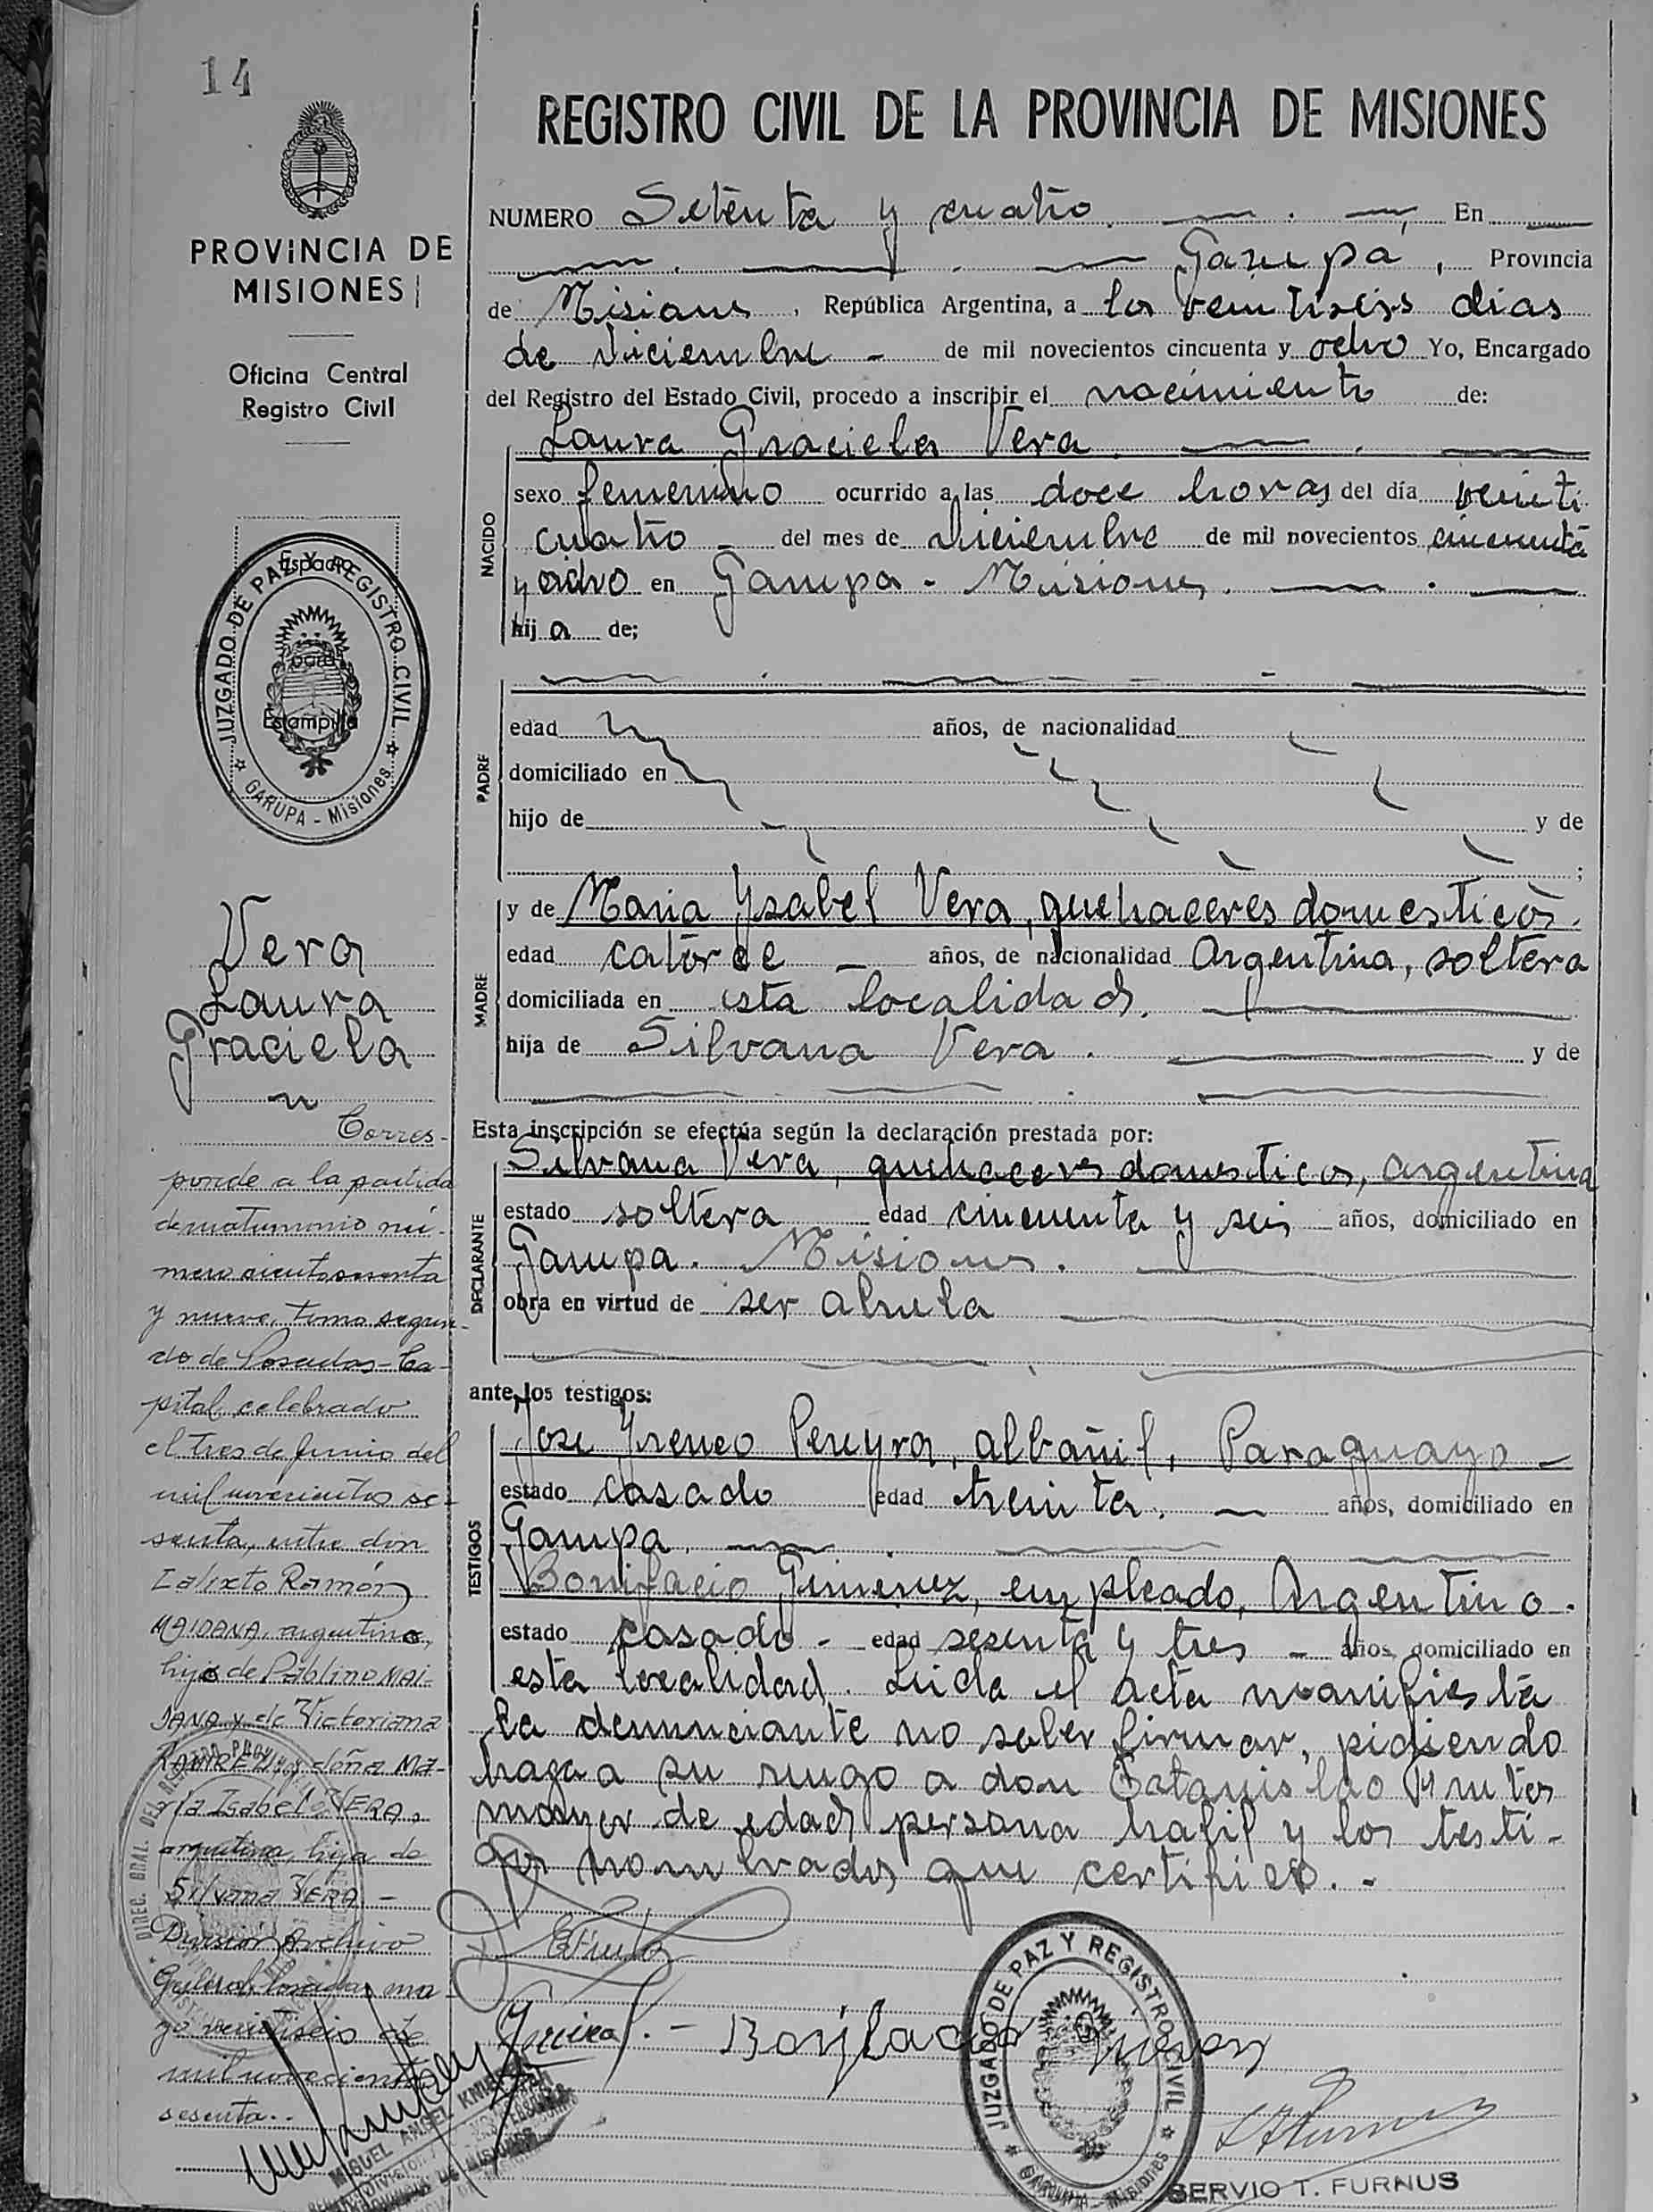 14
PROVINCIA DE
MISIONES
Oficina Central
Registro Civil
Espacio
para
Estampilla
JUZGADO DE PAZ Y REGISTRO CIVIL
GARUPA - Misiones
Vera
Laura
Graciela
Corres-
ponde a la partida
de matrimonio nú-
mero ciento
y nueve, tomo segun-
do de Posadas - Ca-
pital celebrado
el tres de Junio del
mil novecientos se-
senta, entre don
Calixto Ramón
MAIDANA, argentino,
hijo de Pablino MAI-
DANA y de Victoriana
RAMIREZ y doña Ma-
ría Isabel VERA,
argentina, hija de
Silvana VERA. -
División Archivo
General, Posadas, ma-
yo veintiseis de
mil novecientos
sesenta. -
MIGUEL ANGEL
REGISTRO CIVIL DE LA PROVINCIA DE MISIONES
NUMERO Setenta y cuatro. En
Garupá, Provincia
de Misiones, República Argentina, a los veintiseis dias
de diciembre - de mil novecientos cincuenta y ocho Yo, Encargado
del Registro del Estado Civil, procedo a inscribir el nacimiento de:
NACIDO
Laura Graciela Vera.
sexo femenino ocurrido a las doce horas del día veinti
cuatro - del mes de diciembre de mil novecientos cincuenta
y ocho en Garupa - Misiones.
hij a de;
PADRE
edad años, de nacionalidad
domiciliado en
hijo de y de
;
MADRE
y de Maria Ysabel Vera, quehaceres domesticos.
edad catorce - años, de nacionalidad Argentina, soltera
domiciliada en esta localidad.
hija de Silvana Vera. y de
Esta inscripción se efectúa según la declaración prestada por:
DECLARANTE
Silvana Vera, quehaceres domesticos, argentina
estado soltera edad cincuenta y seis años, domiciliado en
Garupa. Misiones.
obra en virtud de ser abuela
ante los testigos:
TESTIGOS
Jose Yreneo Pereyra, albañil, Paraguayo -
estado casado edad treinta. años, domiciliado en
Garupa.
Bonifacio Gimenez, empleado, Argentino.
estado casado - edad sesenta y tres - años, domiciliado en
esta localidad. Leida el acta manifiesta
la denunciante no saber firmar, pidiendo
haga a su ruego a don Estanislao
mayor de edad persona habil y los testi-
gos nombrados que certifico. -
Bonifacio
JUZGADO DE PAZ Y REGISTRO CIVIL
GARUPA - Misiones
SERVIO T. FURNUS